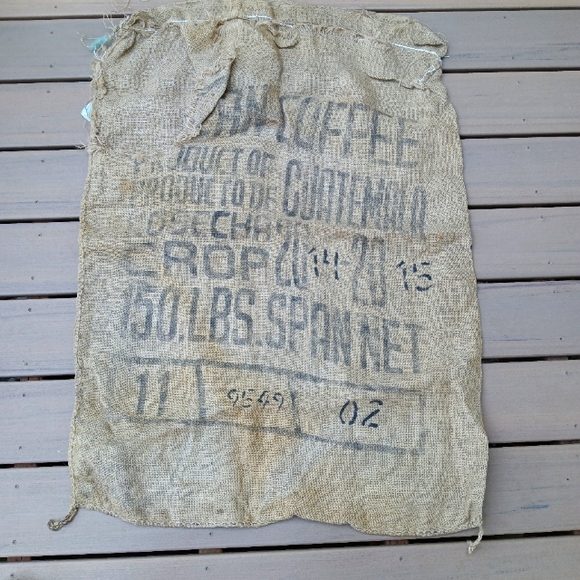 COFFEE
PRODUCT OF
PRODUCTO DE GUATEMALA
COSECHA
CROP 2014 2015
150.LBS.SPAN NET
11 9549 02